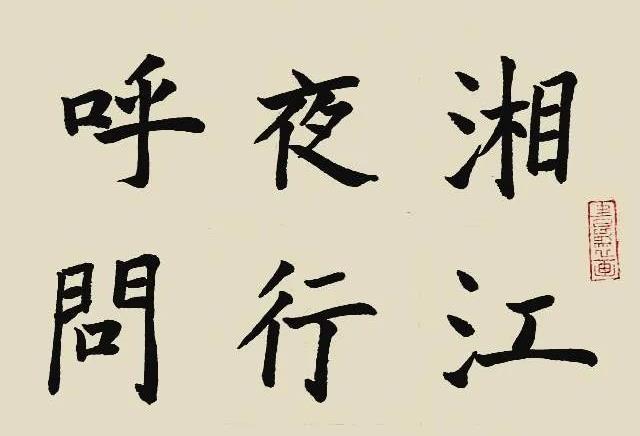 湘江
夜行
呼問